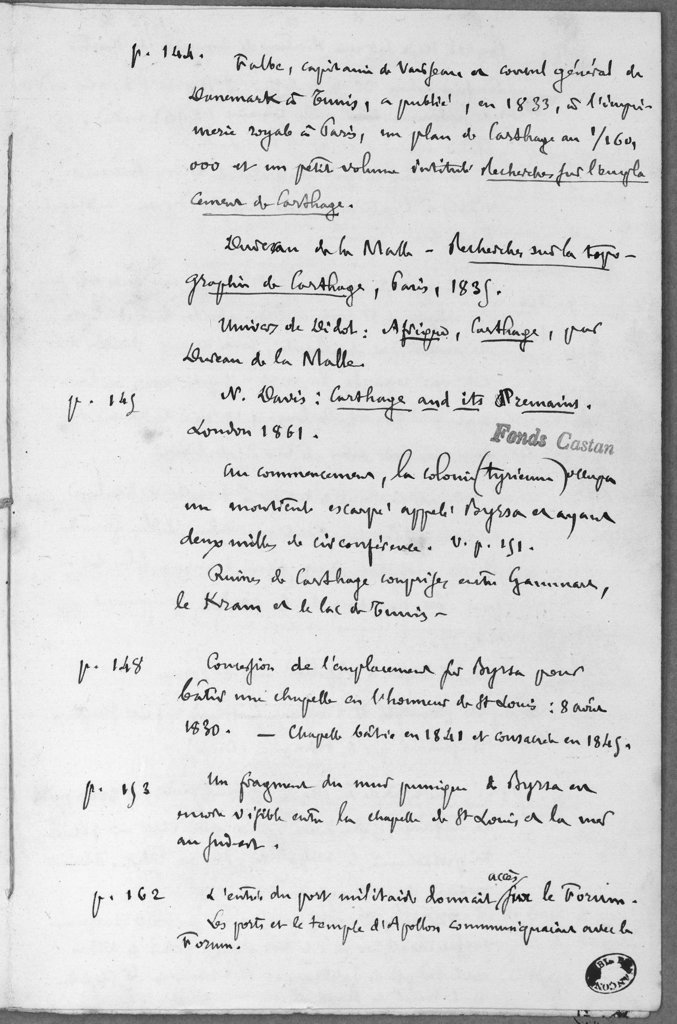 p. 144.
Falbe, capitaine de Vaisseau et consul général de
Danemark à Tunis, a publié, en 1833, à l'impri-
merie royale à Paris, un plan de Carthage au 1/160,
000 et un petit volume intitulé Recherches sur l'empla
cement de Carthage.
Dureau de la Malle – Recherches sur la topo-
graphie de Carthage, Paris, 1835.
Univers de Didot : Afrique, Carthage, par
Dureau de la Malle
p. 145
N. Davis : Carthage and its Remains.
London 1861.
Fonds Castan
Au commencement, la colonie (tyrienne) occupa
un monticule escarpé appelé Byrsa et ayant
deux milles de circonférence. V. p. 151.
Ruines de Carthage comprises entre Gammart,
le Kram et le lac de Tunis –
p. 148
Concession de l'emplacement sur Byrsa pour
bâtir une chapelle en l'honneur de St Louis : 8 août
1830. — Chapelle bâtie en 1841 et consacrée en 1845.
p. 153
Un fragment du mur punique de Byrsa est
encore visible entre la chapelle de St Louis et la mer
au sud-est.
p. 162
accès
L'entrée du port militaire donnait sur le Forum.
Les ports et le temple d'Apollon communiquaient avec le
Forum.
BL. BESANÇON